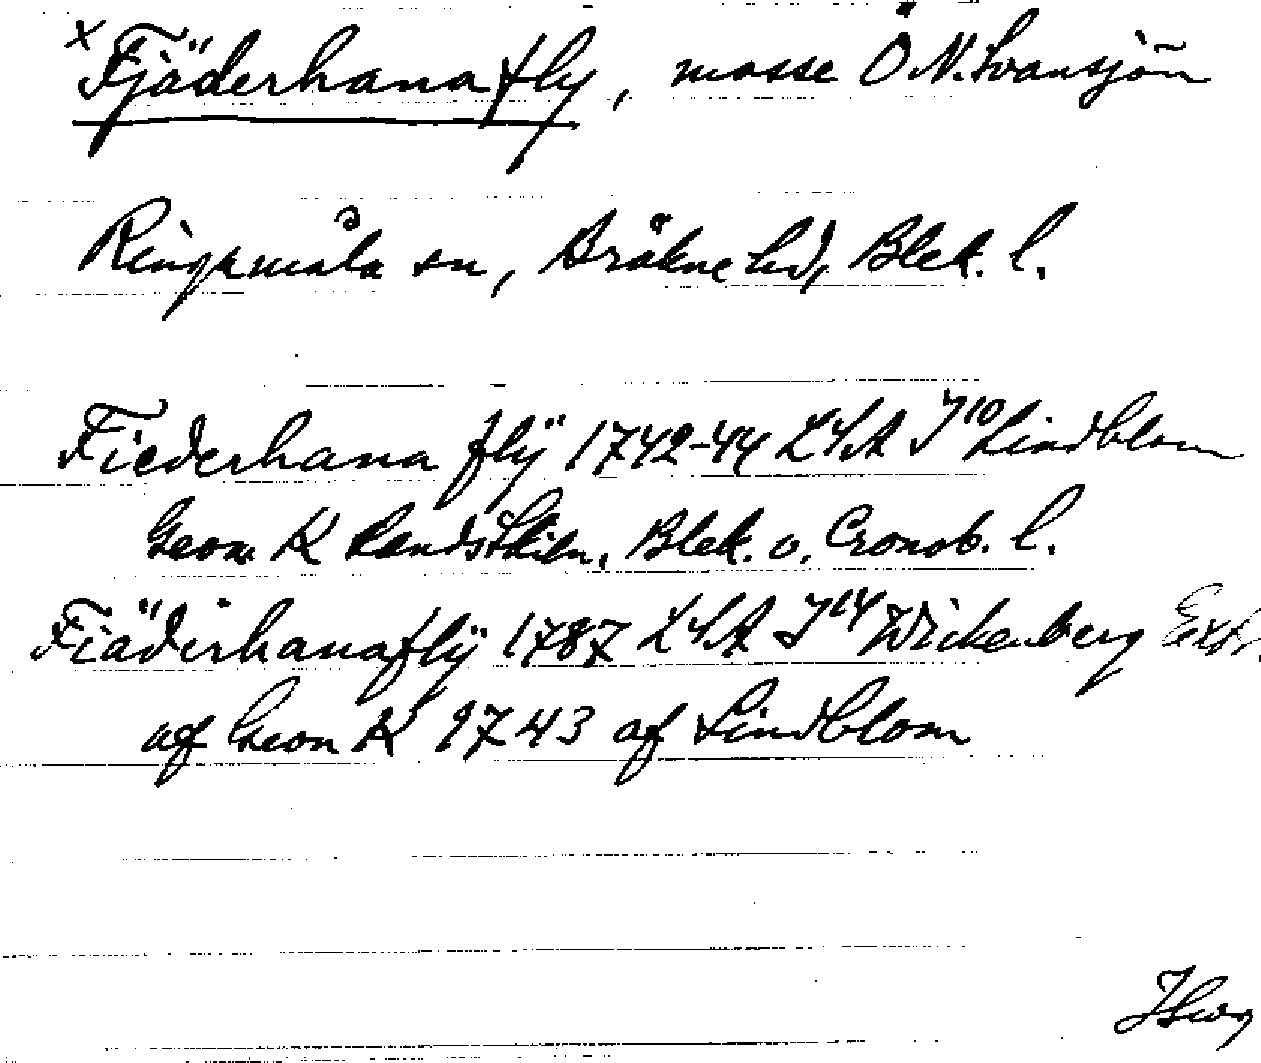 x Fjäderhana fly, mosse Ö N. Svansjön
Ringamåla sn, Bräkne hd, Blek. l.
Fiederhana flÿ 1742-44 LSA J10 Lindblom
Geom K Landtskiln. Blek. o. Cronob. l.
Fiäderhanaflÿ 1787 LSA J14 Wickenberg Extr.
af Geom K 1743 af Lindblom